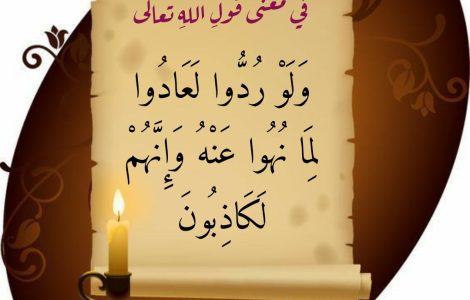 في معنى قولِ اللهِ تعالى
وَلَوْ رُدُّوا لَعَادُوا
لِمَا نُهُوا عَنْهُ وَإِنَّهُمْ
لَكَاذِبُونَ